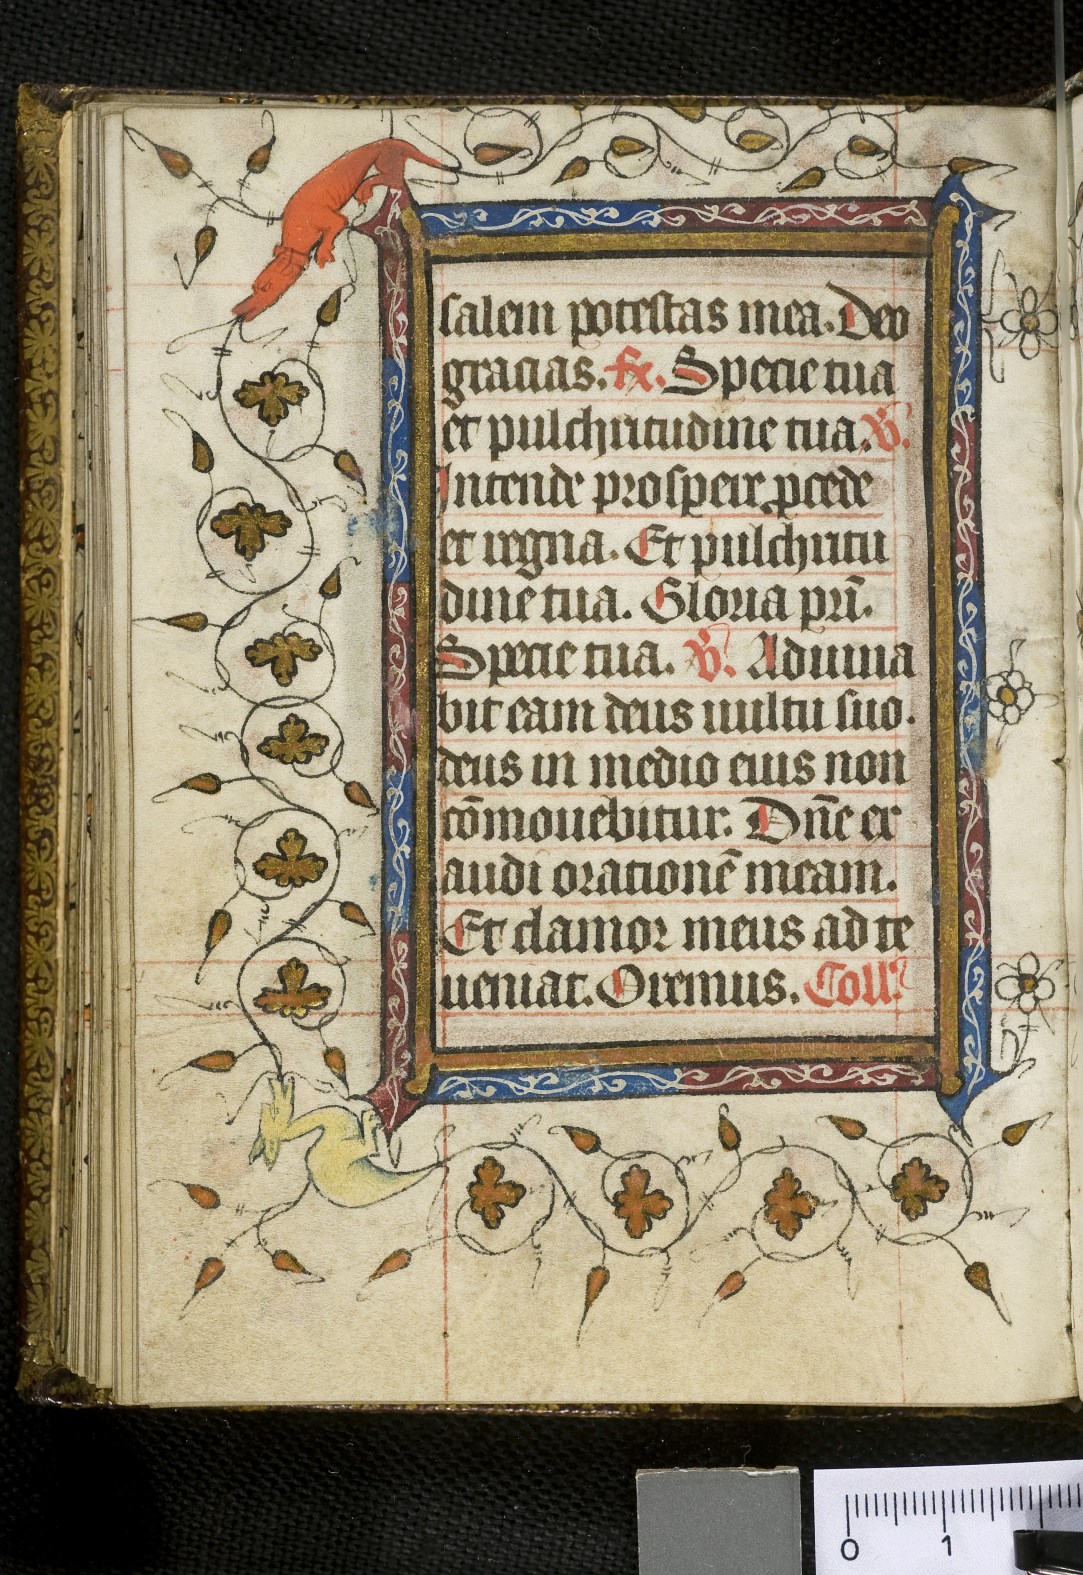 salem potestas mea. Deo
gracias. Rx. Specie tua
et pulchritudine tua. V.
Intende prospere pcede
et regna. Et pulchritu
dine tua. Gloria pri̅.
Specie tua. V. Adiuua
bit eam deus uultu suo.
deus in medio eius non
co̅mouebitur. Dn̅e ex
audi oratione̅ meam.
Et clamor meus ad te
ueniat. Oremus. Coll'
0 1